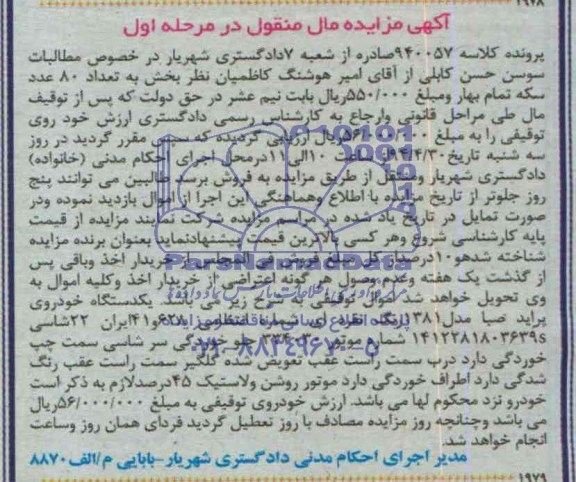 ۱۹۶۸
آگهی مزایده مال منقول در مرحله اول
پرونده کلاسه ۹۴۰۰۵۷صادره از شعبه ۷دادگستری شهریار در خصوص مطالبات
سوسن حسن کابلی از آقای امیر هوشنگ کاظمیان نظر بخش به تعداد ۸۰ عدد
سکه تمام بهار ومبلغ ۵۵۰/۰۰۰ریال بابت نیم عشر در حق دولت که پس از توقیف
مال طی مراحل قانونی وارجاع به کارشناس رسمی دادگستری ارزش خود روی
توقیفی را به مبلغ ریال ارزیابی گردیده که سپس مقرر گردید در روز
سه شنبه تاریخ ۹۴/۴/۳۰از ساعت ۱۰الی۱۱درمحل اجرای احکام مدنی (خانواده)
دادگستری شهریار مستقل از طریق مزایده به فروش برسد طالبین می توانند پنج
روز جلوتر از تاریخ مزایده با اطلاع وهماهنگی این اجرا از اموال بازدید نموده ودر
صورت تمایل در تاریخ یاد شده در مراسم مزایده شرکت نمایند مزایده از قیمت
پایه کارشناسی شروع وهر کسی بالاترین قیمت پیشنهادنماید بعنوان برنده مزایده
شناخته شدهو۱۰درصداز کل مبلغ فروش فی المجلس از خریدار اخذ وباقی پس
از گذشت یک هفته وعدم وصول هر گونه اعتراضی از خریدار اخذ وکلیه اموال به
وی تحویل خواهد شد اموال توقیفی به شرح زیر می باشد یکدستگاه خودروی
پراید صبا مدل۱۳۸۱رنگ نقره ای شماره انتظامی ۶۲۸و۴۱ایران ۲۲شاسی
۱۴۱۲۲۸۱۸۰۳۶۳۹s شماره موتور جلو خوردگی سر شاسی سمت چپ
خوردگی دارد درب سمت راست عقب تعویض شده گلگیر سمت راست عقب رنگ
شدگی دارد اطراف خوردگی دارد موتور روشن ولاستیک ۴۵درصدلازم به ذکر است
خودرو نزد محکوم لها می باشد. ارزش خودروی توقیفی به مبلغ ۵۶/۰۰۰/۰۰۰ریال
می باشد وچنانچه روز مزایده مصادف با روز تعطیل گردید فردای همان روز وساعت
انجام خواهد شد.
مدیر اجرای احکام مدنی دادگستری شهریار-بابایی م/الف۸۸۷۰
۱۹۷۹
ParsNamadData
۰۲۱-۸۸۳۴۹۶۷۰-۵